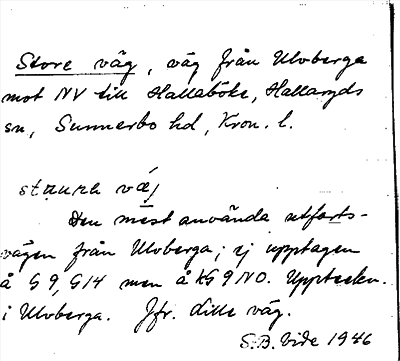 Store väg, väg från Ulvberga
mot NV till Hallaböke, Hallaryds
sn, Sunnerbo hd, Kron. l.
staura väj
Den mest använda utfarts-
vägen från Ulvberga; ej upptagen
å G 9, G 14 men å kG 9 NO. Uppteckn.
i Ulvberga. Jfr. Lille väg.
S.B. Vide 1946